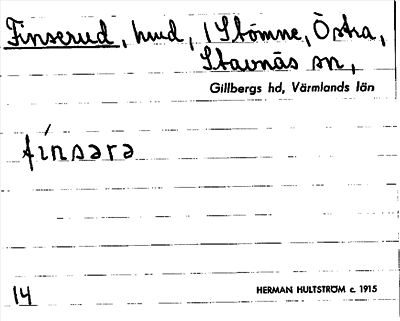 Finserud, hmd, 1 Stömne, Östra,
Stavnäs sn,
Gillbergs hd, Värmlands län
fínsərə
14
HERMAN HULTSTRÖM c. 1915